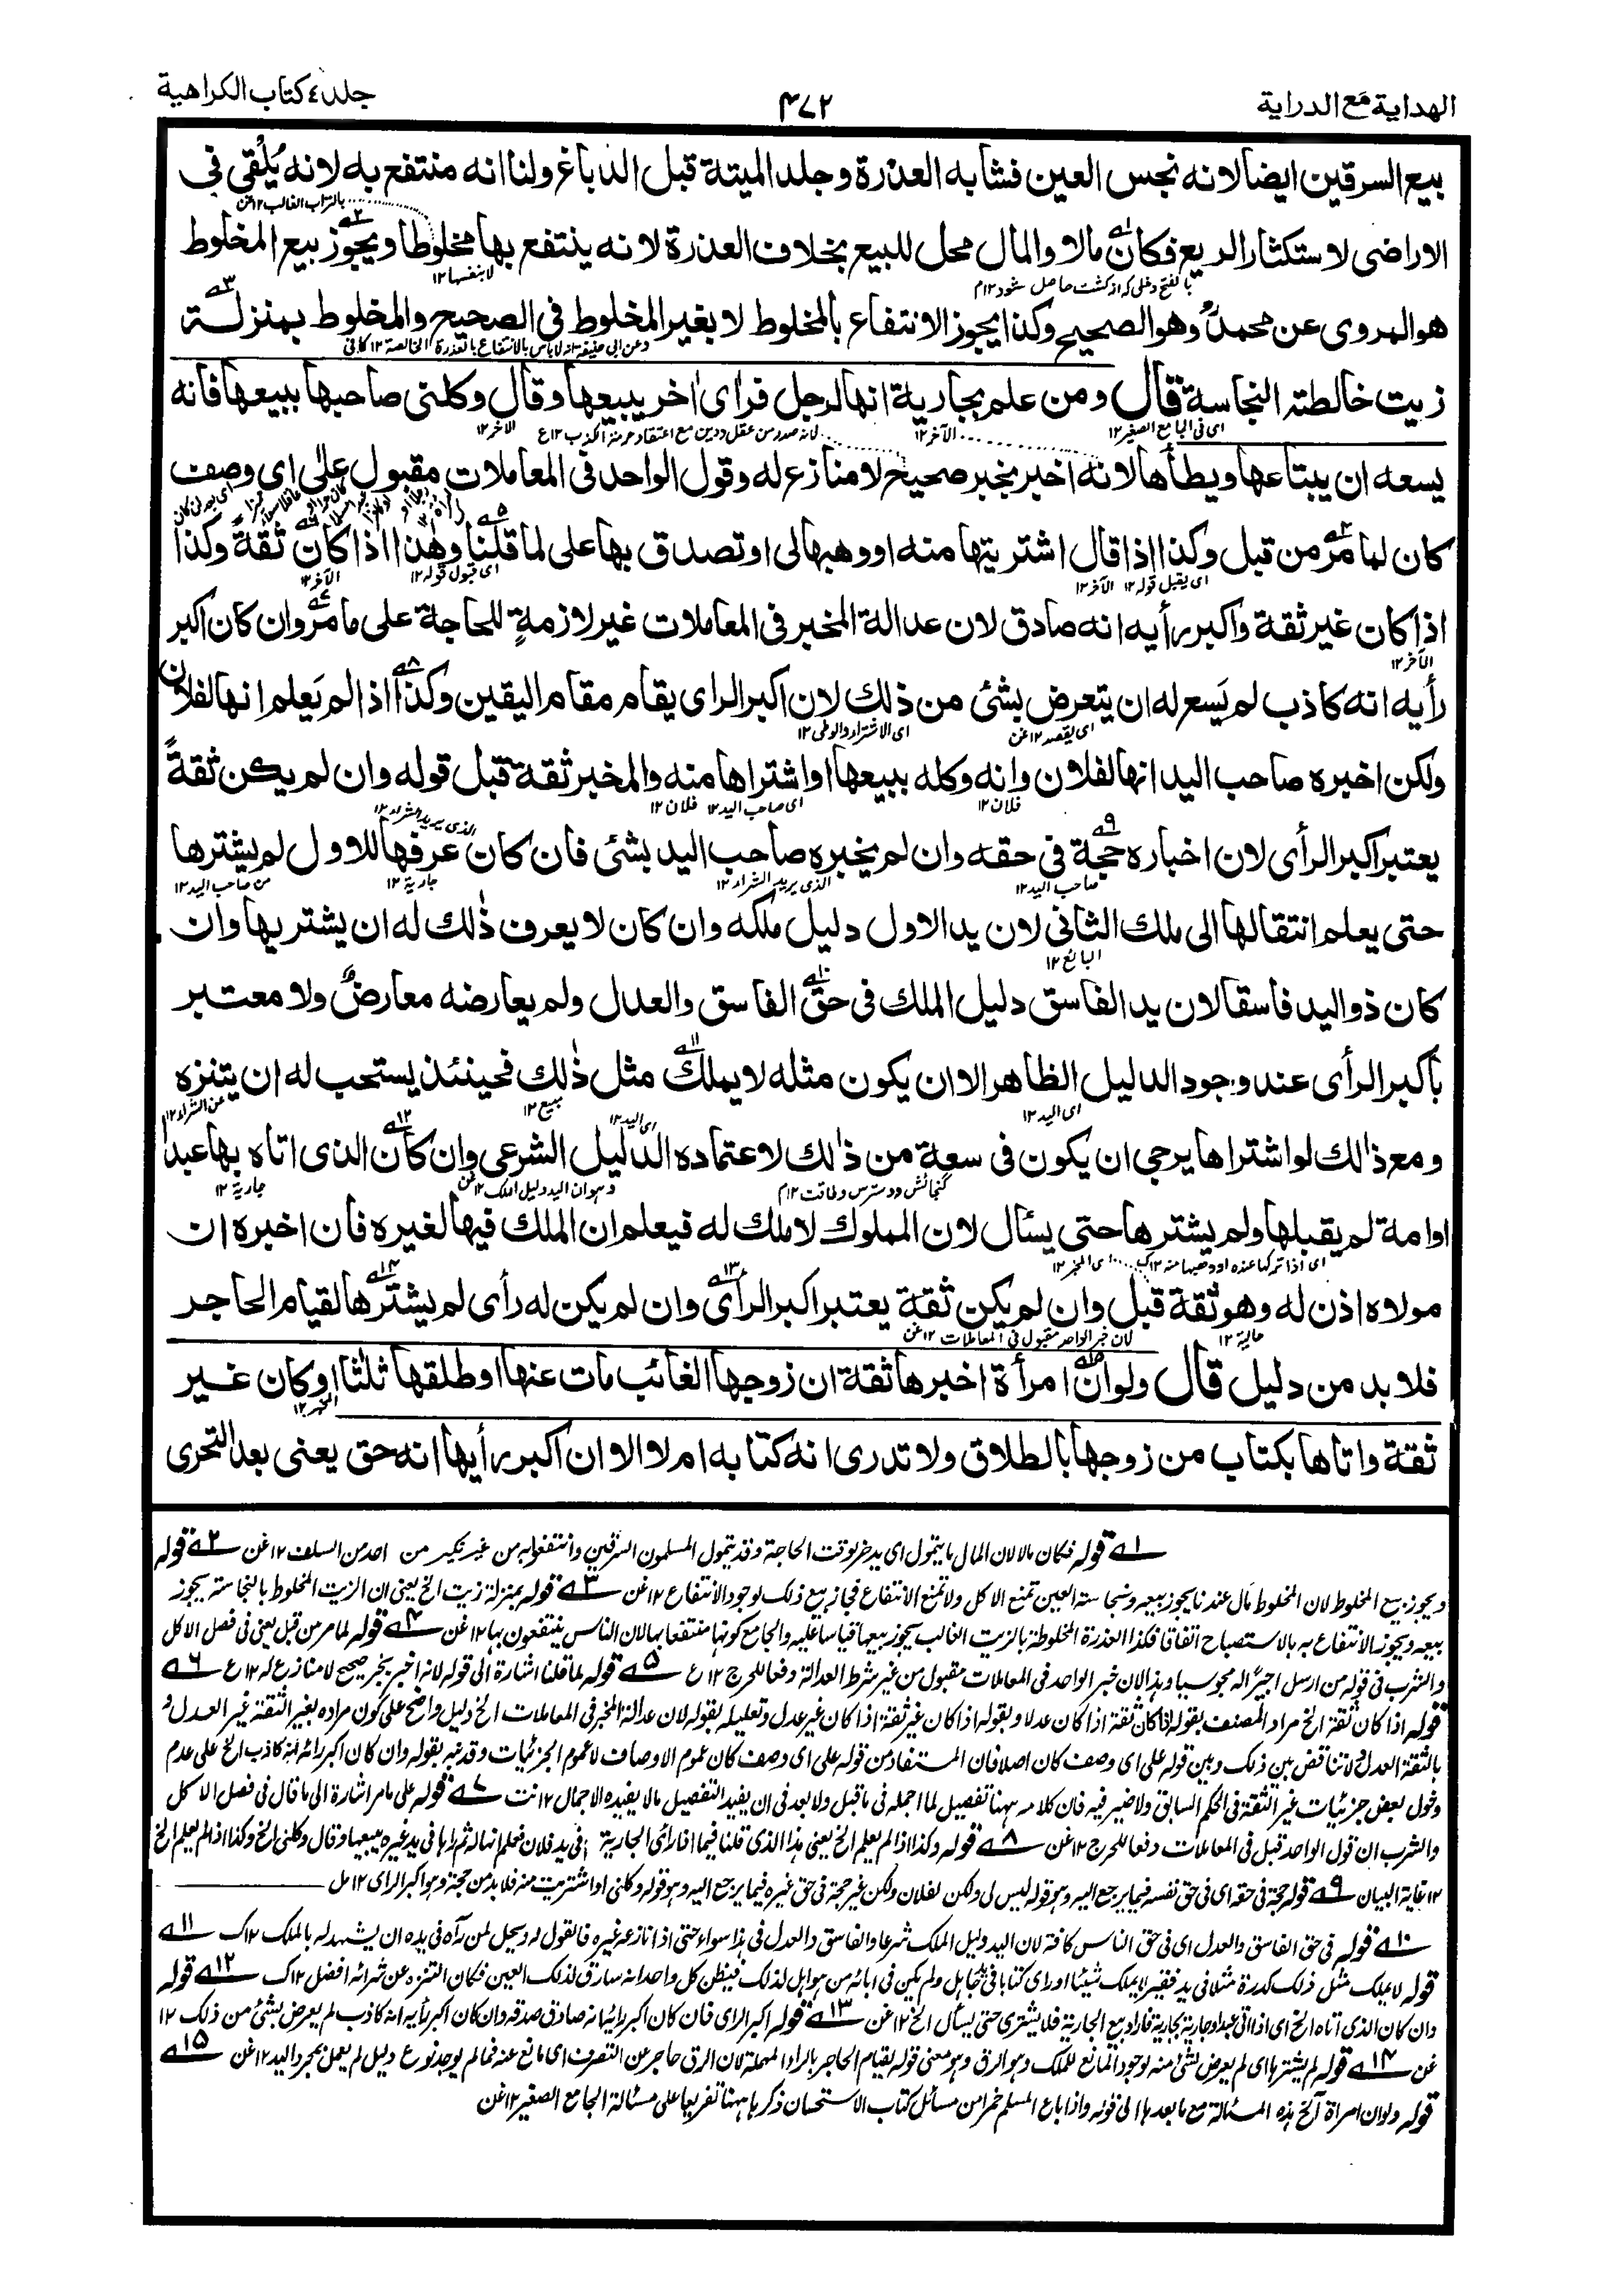 الهداية مع الدراية
٤٧٢
جلد٤ كتاب الكراهية
بيع السرقين ايضا لانه نجس العين فشابه العذرة وجلد الميتة قبل الدباغ ولنا انه منتفع به لانه يُلقى فى
الاراضى لاستكثار الريع فكان مالا والمال محل للبيع بخلاف العذرة لانه ينتفع بها مخلوطا ويجوز بيع المخلوط
هو المروى عن محمد وهو الصحيح وكذا يجوز الانتفاع بالمخلوط لا بغير المخلوط فى الصحيح والمخلوط بمنزلة
زيت خالطته النجاسة قال ومن علم بجارية انها لرجل فراى اخر يبيعها وقال وكلنى صاحبها ببيعها فانه
يسعه ان يبتاعها ويطأها لانه اخبر بخبر صحيح لا منازع له وقول الواحد فى المعاملات مقبول على اى وصف
كان لما مر من قبل وكذا اذا قال اشتريتها منه او وهبها لى او تصدق بها على لما قلنا وهذا اذا كان ثقة وكذا
اذا كان غير ثقة واكبر رأيه انه صادق لان عدالة المخبر فى المعاملات غير لازمةٍ للحاجة على ما مر وان كان اكبر
رأيه انه كاذب لم يسع له ان يتعرض بشئ من ذلك لان اكبر الراى يقام مقام اليقين وكذا اذا لم يعلم انها لفلان
ولكن اخبره صاحب اليد انها لفلان وانه وكله ببيعها او اشتراها منه والمخبر ثقة قبل قوله وان لم يكن ثقةً
يعتبر اكبر الرأى لان اخباره حجة فى حقه وان لم يخبره صاحب اليد بشئ فان كان عرفها للاول لم يشترها
حتى يعلم انتقالها الى ملك الثانى لان يد الاول دليل ملكه وان كان لا يعرف ذلك له ان يشتريها وان
كان ذو اليد فاسقا لان يد الفاسق دليل الملك فى حق الفاسق والعدل ولم يعارضه معارض ولا معتبر
بأكبر الرأى عند وجود الدليل الظاهر الا ان يكون مثله لا يملك مثل ذلك فحينئذ يستحب له ان يتنزه
ومع ذلك لو اشتراها يرجى ان يكون فى سعة من ذلك لاعتماده الدليل الشرعى وان كان الذى اتاه بها عبدا
او امة لم يقبلها ولم يشترها حتى يسأل لان المملوك لا ملك له فيعلم ان الملك فيها لغيره فان اخبره ان
مولاه اذن له وهو ثقة قبل وان لم يكن ثقة يعتبر اكبر الرأى وان لم يكن له رأى لم يشترها لقيام الحاجر
فلا بد من دليل قال ولو ان امرأة اخبرها ثقة ان زوجها الغائب مات عنها او طلقها ثلثا او كان غير
ثقة واتاها بكتاب من زوجها بالطلاق ولا تدرى انه كتابه ام لا الا ان اكبر رأيها انه حق يعنى بعد التحرى
١ قوله فكان مالا لان المال ما يتمول اى يدخر لوقت الحاجة وقد يتمول المسلمون السرقين وانتفعوا به من غير نكير من احد من السلف ١٢ عن ٢ قوله
ويجوز بيع المخلوط لان المخلوط مال عندنا يجوز بيعه ونجاسة العين تمنع الاكل ولا تمنع الانتفاع فجاز بيع ذلك لوجود الانتفاع ١٢ عن ٣ قوله بمنزلة زيت الخ يعنى ان الزيت المخلوط بالنجاسة يجوز
بيعه ويجوز الانتفاع به بالاستصباح اتفاقا فكذا العذرة المخلوطة بالزيت الغالب يجوز بيعها قياسا عليه والجامع كونها منتفعا بها لان الناس ينتفعون بها ١٢ عن ٤ قوله لما مر من قبل يعنى فى فصل الاكل
والشرب فى قوله من ارسل اجيرا له مجوسيا وهذا لان خبر الواحد فى المعاملات مقبول من غير شرط العدالة دفعا للحرج ١٢ ع ٥ قوله لما قلنا اشارة الى قوله لانه اخبر بخبر صحيح لا منازع له ١٢ ع ٦
قوله اذا كان ثقة الخ مراد المصنف بقوله اذا كان ثقة اذا كان عدلا وبقوله اذا كان غير ثقة اذا كان غير عدل وتعليله بقوله لان عدالة المخبر فى المعاملات الخ دليل واضح على كون مراده بغير الثقة غير العدل و
بالثقة العدل ولا تناقض بين ذلك وبين قوله على اى وصف كان اصلا فان المستفاد من قوله على اى وصف كان عموم الاوصاف لا عموم الجزئيات وقد نبه بقوله وان كان اكبر رائه انه كاذب الخ على عدم
دخول بعض جزئيات غير الثقة فى الحكم السابق ولا ضير فيه فان كلامه ههنا تفصيل لما اجمله فى ما قبل ولا بعد فى ان يفيد التفصيل ما لا يفيده الاجمال ١٢ نت ٧ قوله على ما مر اشارة الى ما قال فى فصل الاكل
والشرب ان قول الواحد تقبل فى المعاملات دفعا للحرج ١٢ عن ٨ قوله وكذا اذا لم يعلم الخ يعنى هذا الذى قلنا فيما اذا رأى الجارية فى يد فلان فعلم انها له ثم راها فى يد غيره يبيعها وقال وكلنى الخ وكذا اذا لم يعلم الخ
١٢ غاية البيان ٩ قوله حجة فى حقه اى فى حق نفسه فيما يرجع اليه وهو قوله ليس لى ولكن لفلان ولكن غير حجة فى حق غيره فيما يرجع اليه وهو قوله وكلنى او اشتريت منه فلا بد من حجة وهو اكبر الراى ١٢ مل
١٠ قوله فى حق الفاسق والعدل اى فى حق الناس كافة لان اليد دليل الملك شرعا والفاسق والعدل فى هذا سواء حتى اذا نازعه غيره فالقول له ويحل لمن رآه فى يده ان يشهد له بالملك ١٢ ك ١١
قوله لا يملك مثل ذلك كدرة مثلا فى يد فقير لا يملك شيئا او راى كتابا فى يد جاهل ولم يكن فى ابائه من هو اهل لذلك فيظن كل واحد انه سارق لذلك العين فكان التنزه عن شرائه افضل ١٢ ك ١٢ قوله
وان كان الذى اتاه الخ اى اذا اتى عبد او جارية بجارية فاراد بيع الجارية فلا يشترى حتى يسأل الخ ١٢ عن ١٣ قوله اكبر الراى فان كان اكبر رائه انه صادق صدقه وان كان اكبر رأيه انه كاذب لم يعرض بشئ من ذلك ١٢
عن ١٤ قوله لم يشترها اى لم يعرض بشئ منه لوجود المانع للملك وهو الرق وهو معنى قوله لقيام الحاجر بالراء المهملة لان الرق حاجر عن التصرف اى مانع عنه فما لم يوجد نوع دليل لم يعمل بمجرد اليد ١٢ عن ١٥
قوله ولو ان امرأة الخ هذه المسألة مع ما بعدها الى قوله واذا باع المسلم خمرا من مسائل كتاب الاستحسان ذكرها ههنا تفريعا على مسألة الجامع الصغير ١٢ عن